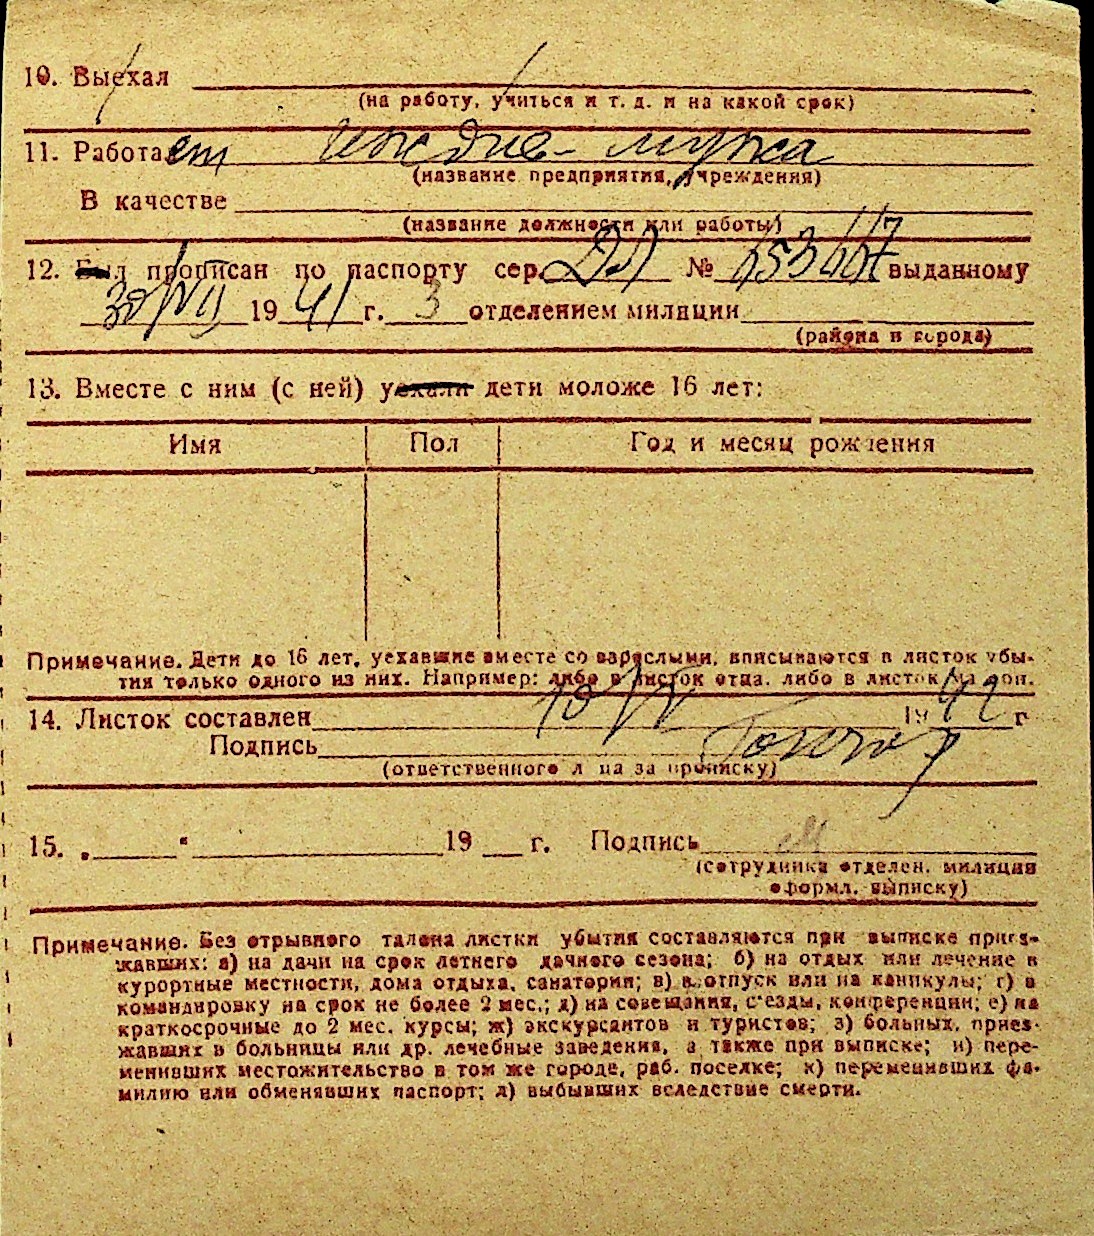 10. Выехал
(на работу, учиться и т. д. и на какой срок)
11. Работает иждив- мужа
(название предприятия, учреждения)
В качестве
(название должности или работы)
12. Был прописан по паспорту сер. № выданному
30/VII 1941 г. 3 отделением милиции
(района и города)
13. Вместе с ним (с ней) уехали дети моложе 16 лет:
Имя Пол Год и месяц рождения
Примечание. Дети до 16 лет, уехавшие вместе со взрослыми, вписываются в листок убы-
тия только одного из них. Например: либо в листок отца, либо в листок матери.
14. Листок составлен 1942 г
Подпись
(ответственного лица за прописку)
15. „ “ 19 г. Подпись
(сотрудника отделен. милиции
оформл. выписку)
Примечание. Без отрывного талона листки убытия составляются при выписке приез-
жавших: а) на дачи на срок летнего дачного сезона; б) на отдых или лечение в
курортные местности, дома отдыха, санатории; в) в отпуск или на каникулы; г) в
командировку на срок не более 2 мес.; д) на совещания, с'езды, конференции; е) на
краткосрочные до 2 мес. курсы; ж) экскурсантов и туристов; з) больных, приез-
жавших в больницы или др. лечебные заведения, а также при выписке; и) пере-
менивших местожительство в том же городе, раб. поселке; к) переменивших фа-
милию или обменявших паспорт; л) выбывших вследствие смерти.